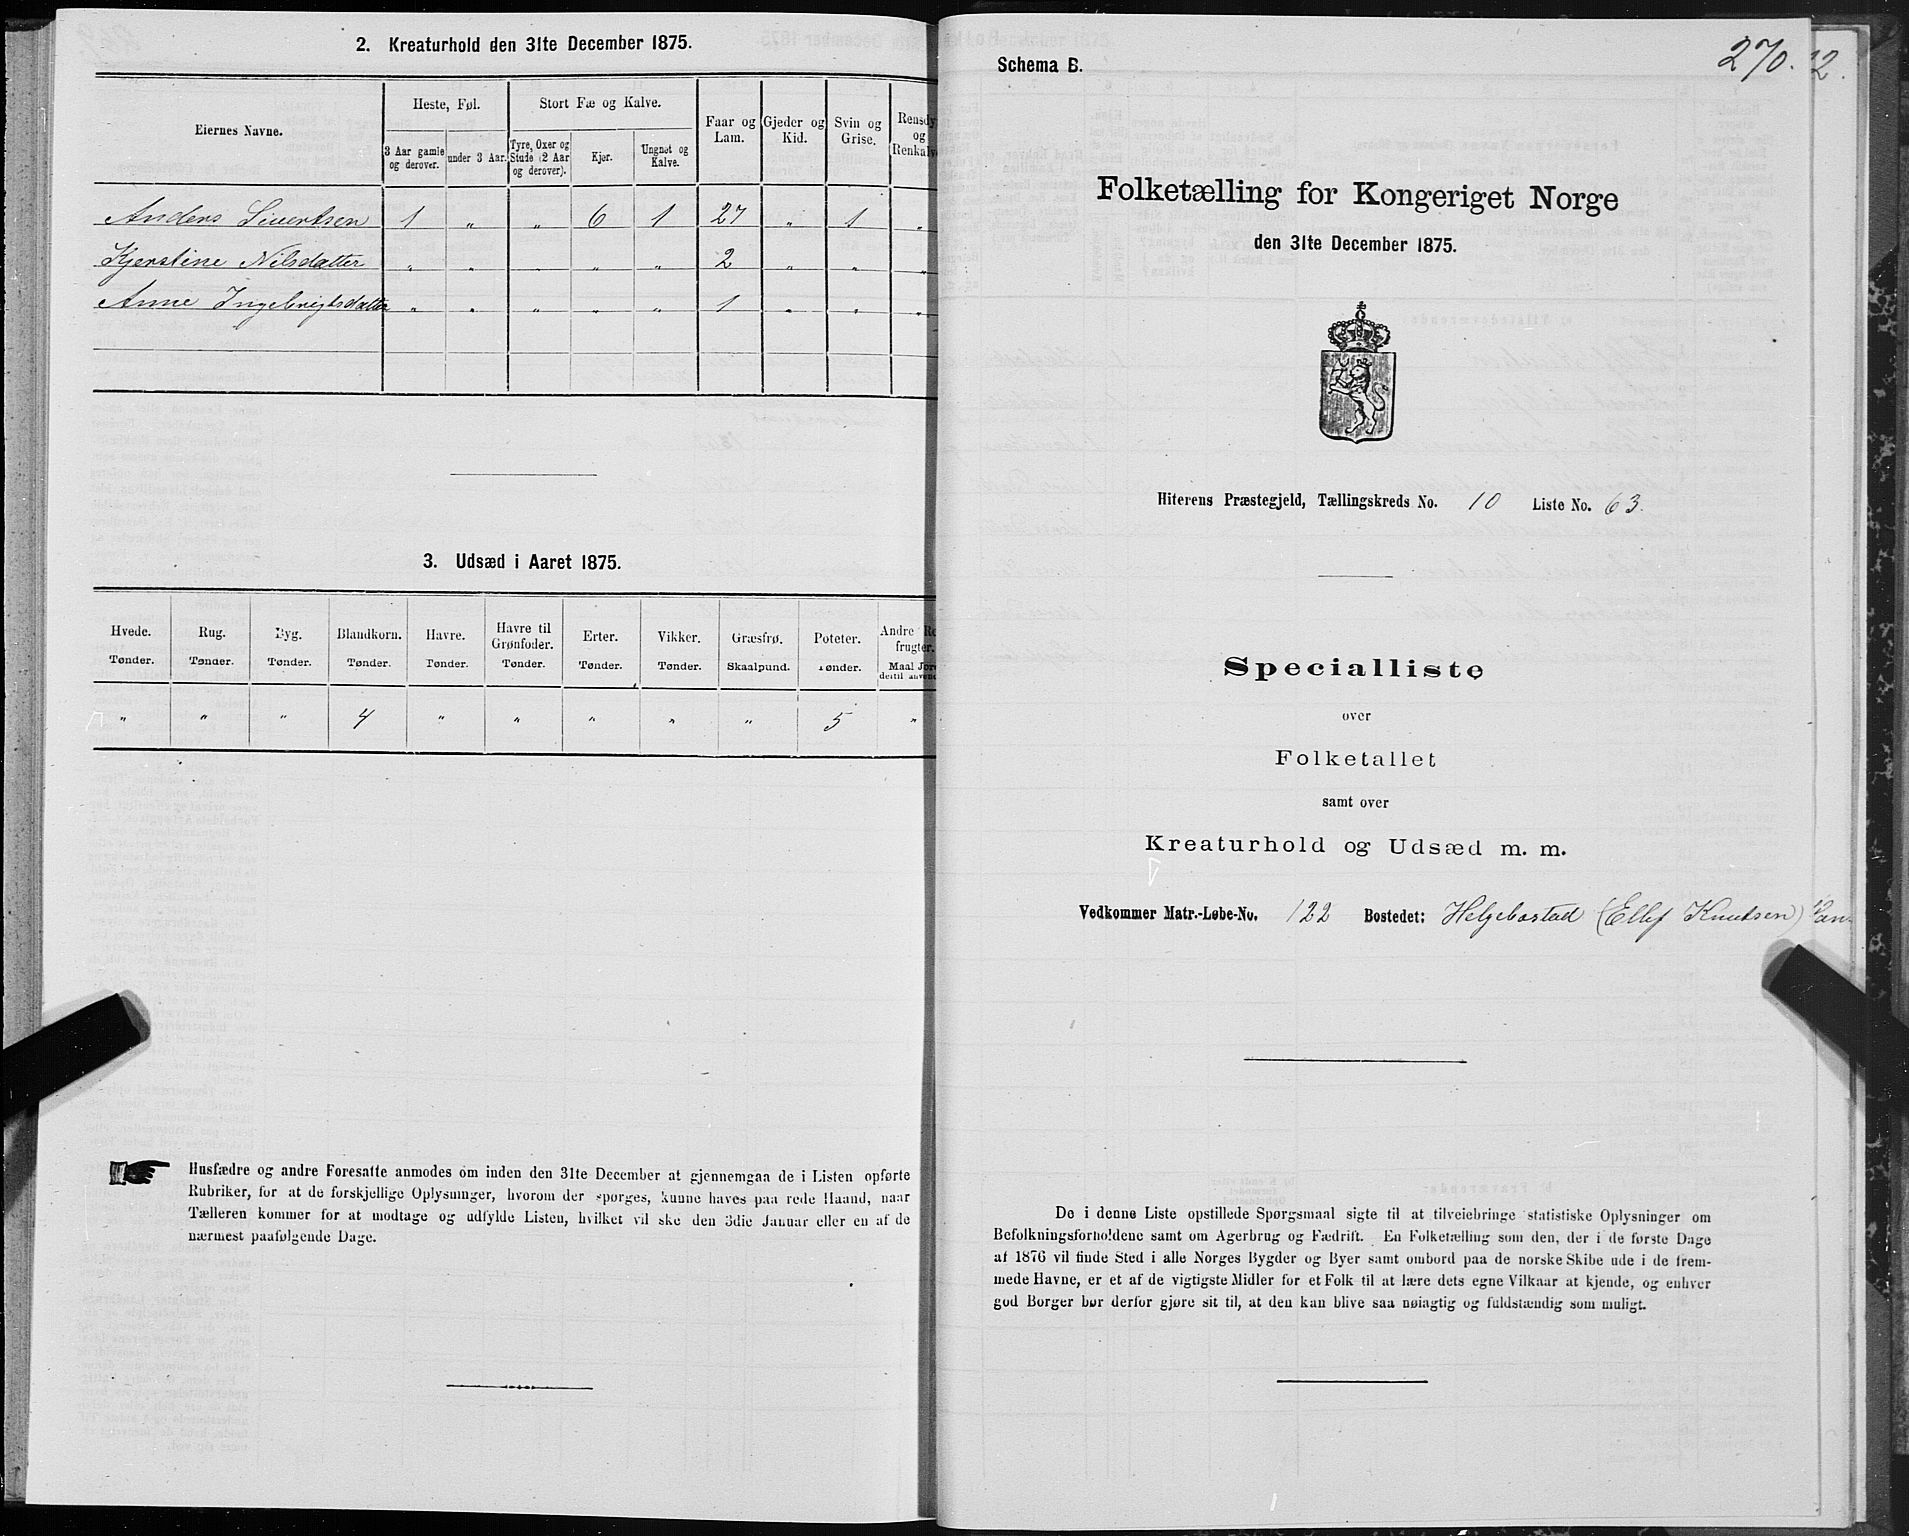 2. Kreaturhold den 31te December 1875.
Eiernes Navne.
Heste, Føl.
Stort Fæ og Kalve.
Faar og Lam.
Gjeder og Kid.
Svin og Grise.
Rensdy
og
Renkalv
3 Aar gamle og derover.
under 3 Aar.
Tyre, Oxer og Stude (2 Aar og derover).
Kjør.
Ungnøt og Kalve.
Anders Sivertsen 1 „ „ 6 1 27 „ 1 „
Kjerstine Nilsdatter „ „ „ „ „ 2 „ „ „
Anne Ingebrigtsdatter „ „ „ „ „ 1 „ „ „
3. Udsæd i Aaret 1875.
Hvede. Rug. Byg. Blandkorn. Havre. Havre til Grønfoder. Erter. Vikker. Græsfrø. Poteter. Andre
frugter.
Tønder. Tønder. Tønder. Tønder. Tønder. Tønder. Tønder. Tønder. Skaalpund. Tønder. Maal
dertil
„ „ „ 4 „ „ „ „ „ 5 „
Husfædre og andre Foresatte anmodes om inden den 31te December at gjennemgaa de i Listen opførte
Rubriker, for at de forskjellige Oplysninger, hvorom der spørges, kunne haves paa rede Haand, naar
Tælleren kommer for at modtage og udfylde Listen, hvilket vil ske den 3die Januar eller en af de
nærmest paafølgende Dage.
270. 12.
Schema B.
Folketælling for Kongeriget Norge
den 31te December 1875.
Hiterens Præstegjeld, Tællingskreds No. 10 Liste No. 63.
Specialliste
over
Folketallet
samt over
Kreaturhold og Udsæd m. m.
Vedkommer Matr.-Løbe-No. 122 Bostedet: Helgebostad (Ellef Knutsen)
De i denne Liste opstillede Spørgsmaal sigte til at tilveiebringe statistiske Oplysninger om
Befolkningsforholdene samt om Agerbrug og Fædrift. En Folketælling som den, der i de første Dage
af 1876 vil finde Sted i alle Norges Bygder og Byer samt ombord paa de norske Skibe ude i de frem-
mede Havne, er et af de vigtigste Midler for et Folk til at lære dets egne Vilkaar at kjende, og enhver
god Borger bør derfor gjøre sit til, at den kan blive saa nøiagtig og fuldstændig som muligt.